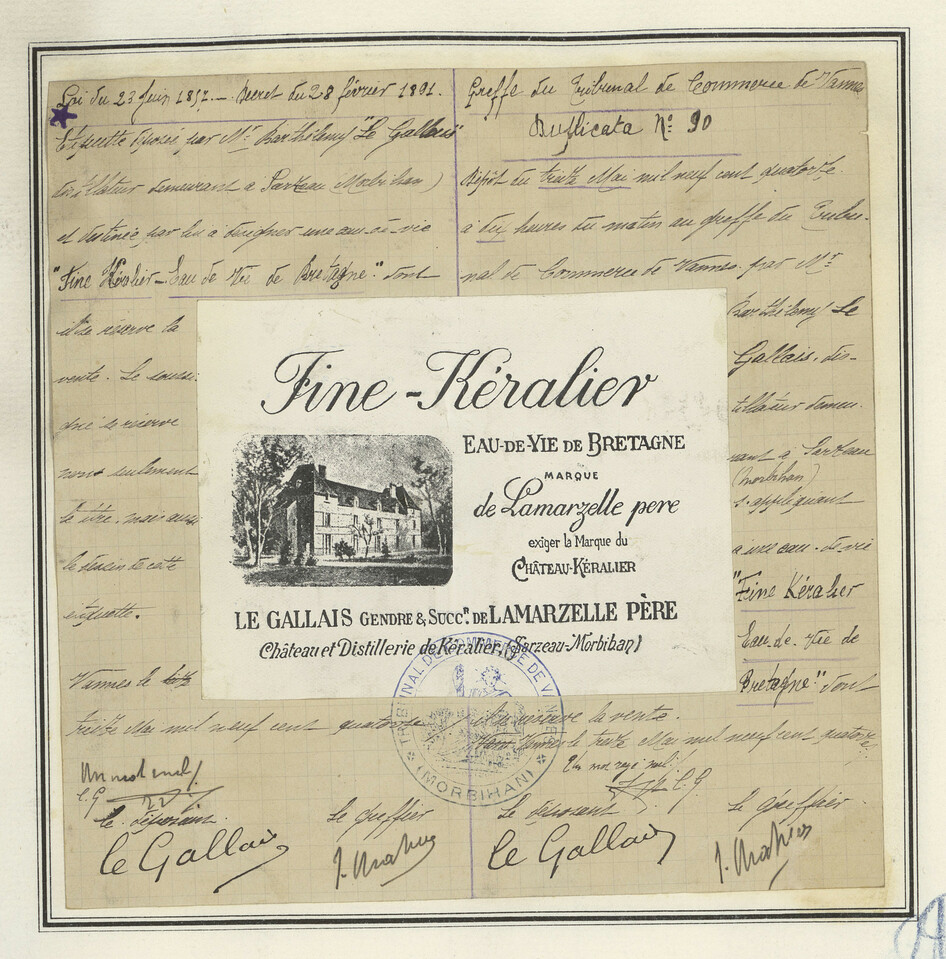 Loi du 23 Juin 1857. — Décret du 28 février 1891.
Etiquette déposée par Mr Barthélemy "Le Gallais"
distillateur demeurant à Sarzeau (Morbihan)
et destinée par lui à désigner une eau-de-vie
"Fine Kéralier - Eau de Vie de Bretagne" dont
il se réserve la
vente. Le soussi-
gné se réserve
non seulement
le titre, mais aussi
le dessin de cette
etiquette.
Vannes le
treize Mai mil neuf cent quatorze
Un mot nul
L. G
Le déposant
Le greffier
Le Gallais
Greffe du Tribunal de Commerce de Vannes
Duplicata No 90
Dépôt du treize Mai mil neuf cent quatorze
à dix heures du matin au greffe du Tribu-
nal de Commerce de Vannes par Mr
Barthélemy Le
Gallais, dis-
tillateur demeu-
rant à Sarzeau
(Morbihan)
s'appliquant
à une eau-de-vie
"Fine Kéralier
Eau-de-Vie de
Bretagne" dont
il se réserve la vente.
Vannes le treize Mai mil neuf cent quatorze
Un mot rayé nul
L. G
Le déposant
Le greffier
Le Gallais
Fine-Kéralier
EAU-DE-VIE DE BRETAGNE
MARQUE
de Lamarzelle pere
exiger la Marque du
CHÂTEAU-KÉRALIER
LE GALLAIS GENDRE & SUCCR. DE LAMARZELLE PÈRE
Château et Distillerie de Kéralier, (Sarzeau-Morbihan)
TRIBUNAL DE COMMERCE DE VANNES
(MORBIHAN)